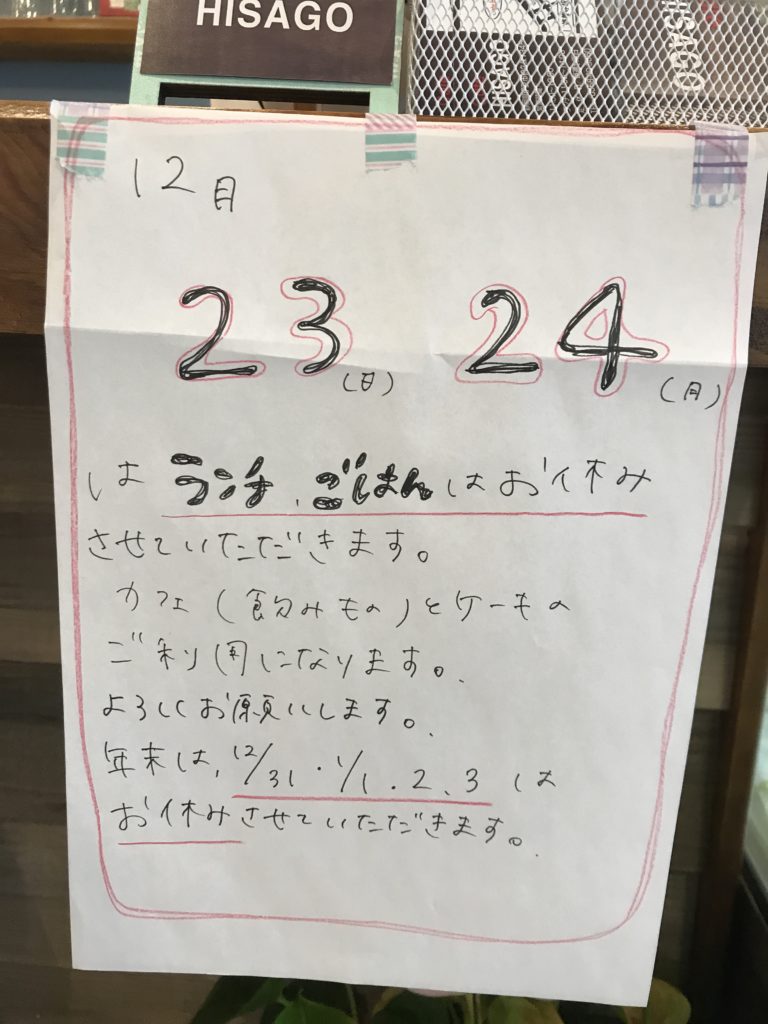 HISAGO
HISAGO
HISAGO
12月
23(日) 24(月)
は ランチ、ごはんはお休み
させていただきます。
カフェ(飲みもの)とケーキの
ご利用になります。
よろしくお願いします。
年末は、12/31・1/1.2.3は
お休みさせていただきます。